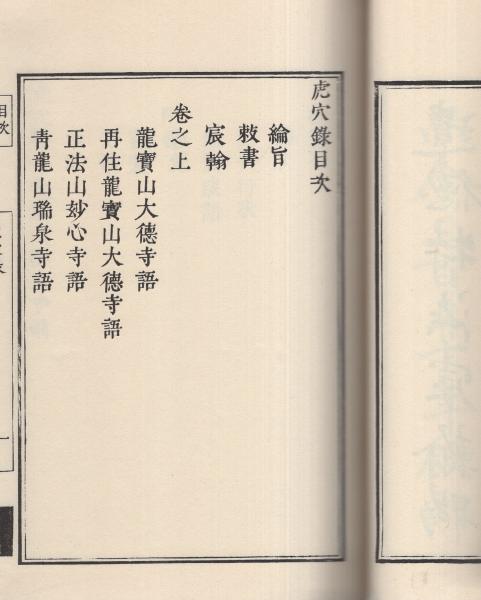 虎穴錄目次
綸旨
敕書
宸翰
卷之上
龍寶山大德寺語
再住龍寶山大德寺語
正法山玅心寺語
靑龍山瑞泉寺語
目次